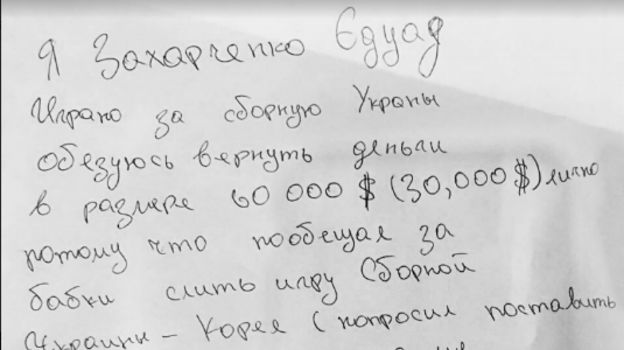 Я Захарченко Єдуад
Играю за сборную Украны
обезуюсь вернуть деньги
в размере 60 000 $ (30,000 $) лично
потому что пообещал за
бабки слить игру Сборной
Украины - Корея (попросил поставить